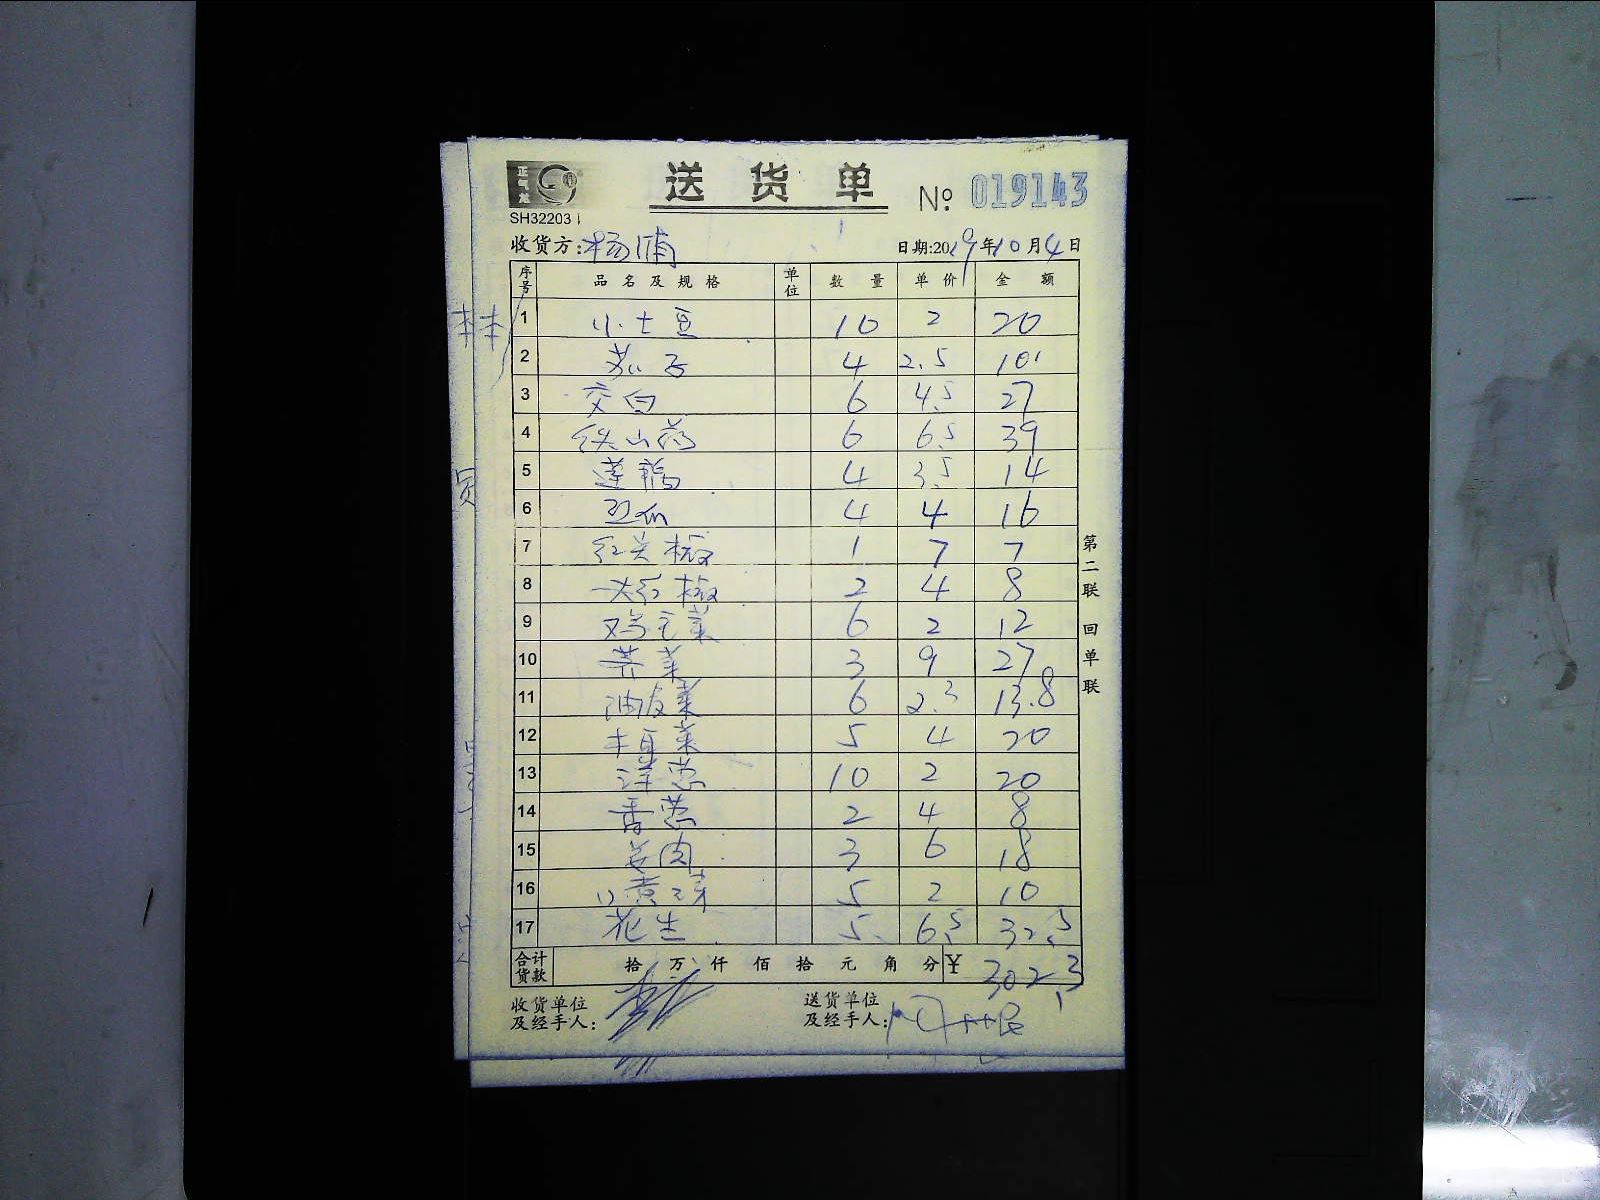 正气龙
SH32203
送货单 № 019143
收货方:杨浦 日期:2019年10月4日
序号 品名及规格 单位 数量 单价 金额
1 小土豆 10 2 20
2 茄子 4 2.5 10
3 交白 6 4.5 27
4 铁山药 6 6.5 39
5 莲藕 4 3.5 14
6 4 4 16
7 红尖椒 1 7 7
8 大红椒 2 4 8
9 鸡毛菜 6 2 12
10 芥菜 3 9 27
11 油麦菜 6 2.3 13.8
12 豆菜 5 4 20
13 洋葱 10 2 20
14 香葱 2 4 8
15 姜肉 3 6 18
16 黄豆芽 5 2 10
17 花生 5 6.5 32.5
合计货款 拾万仟佰拾元角分 ¥ 302.3
收货单位及经手人: 送货单位及经手人:
第二联 回单联